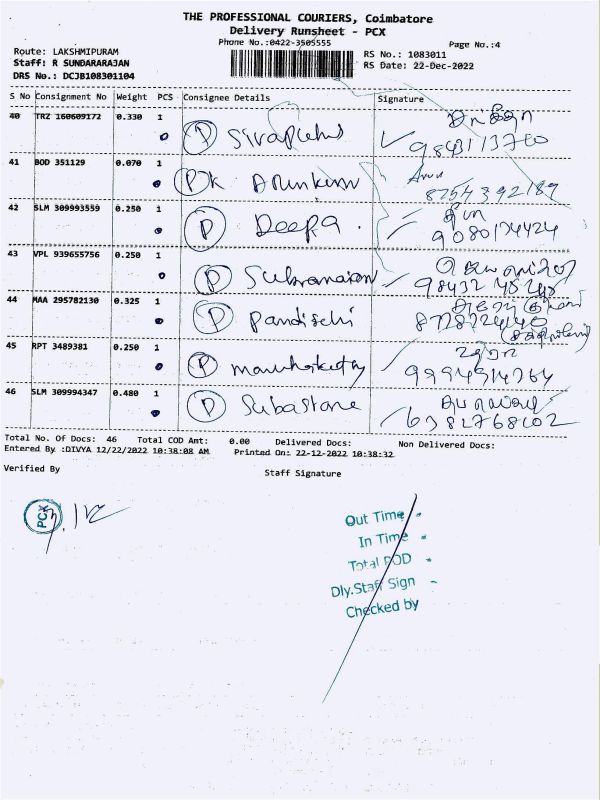 THE PROFESSIONAL COURIERS, Coimbatore
Delivery Runsheet - PCX
Phone No.:0422-3505555
Page No.:4
Route: LAKSHMIPURAM
RS No.: 1083011
Staff: R SUNDARARAJAN
RS Date: 22-Dec-2022
DRS No.: DCJB108301104
S No Consignment No Weight PCS Consignee Details Signature
40 TRZ 160609172 0.330 1
9843113760
41 BOD 351129 0.070 1
P K Arunkumar Arun
8754392189
42 SLM 309993559 0.250 1
P Deepa தீபா
9080174424
43 VPL 939655756 0.250 1
P
44 MAA 295782130 0.325 1
P
45 RPT 3489381 0.250 1
P
9994314764
46 SLM 309994347 0.480 1
P
6381768602
Total No. Of Docs: 46 Total COD Amt: 0.00 Delivered Docs: Non Delivered Docs:
Entered By :DIVYA 12/22/2022 10:38:08 AM Printed On: 22-12-2022 10:38:32
Verified By Staff Signature
PCX
Out Time -
In Time -
Total POD -
Dly.Staff Sign -
Checked by